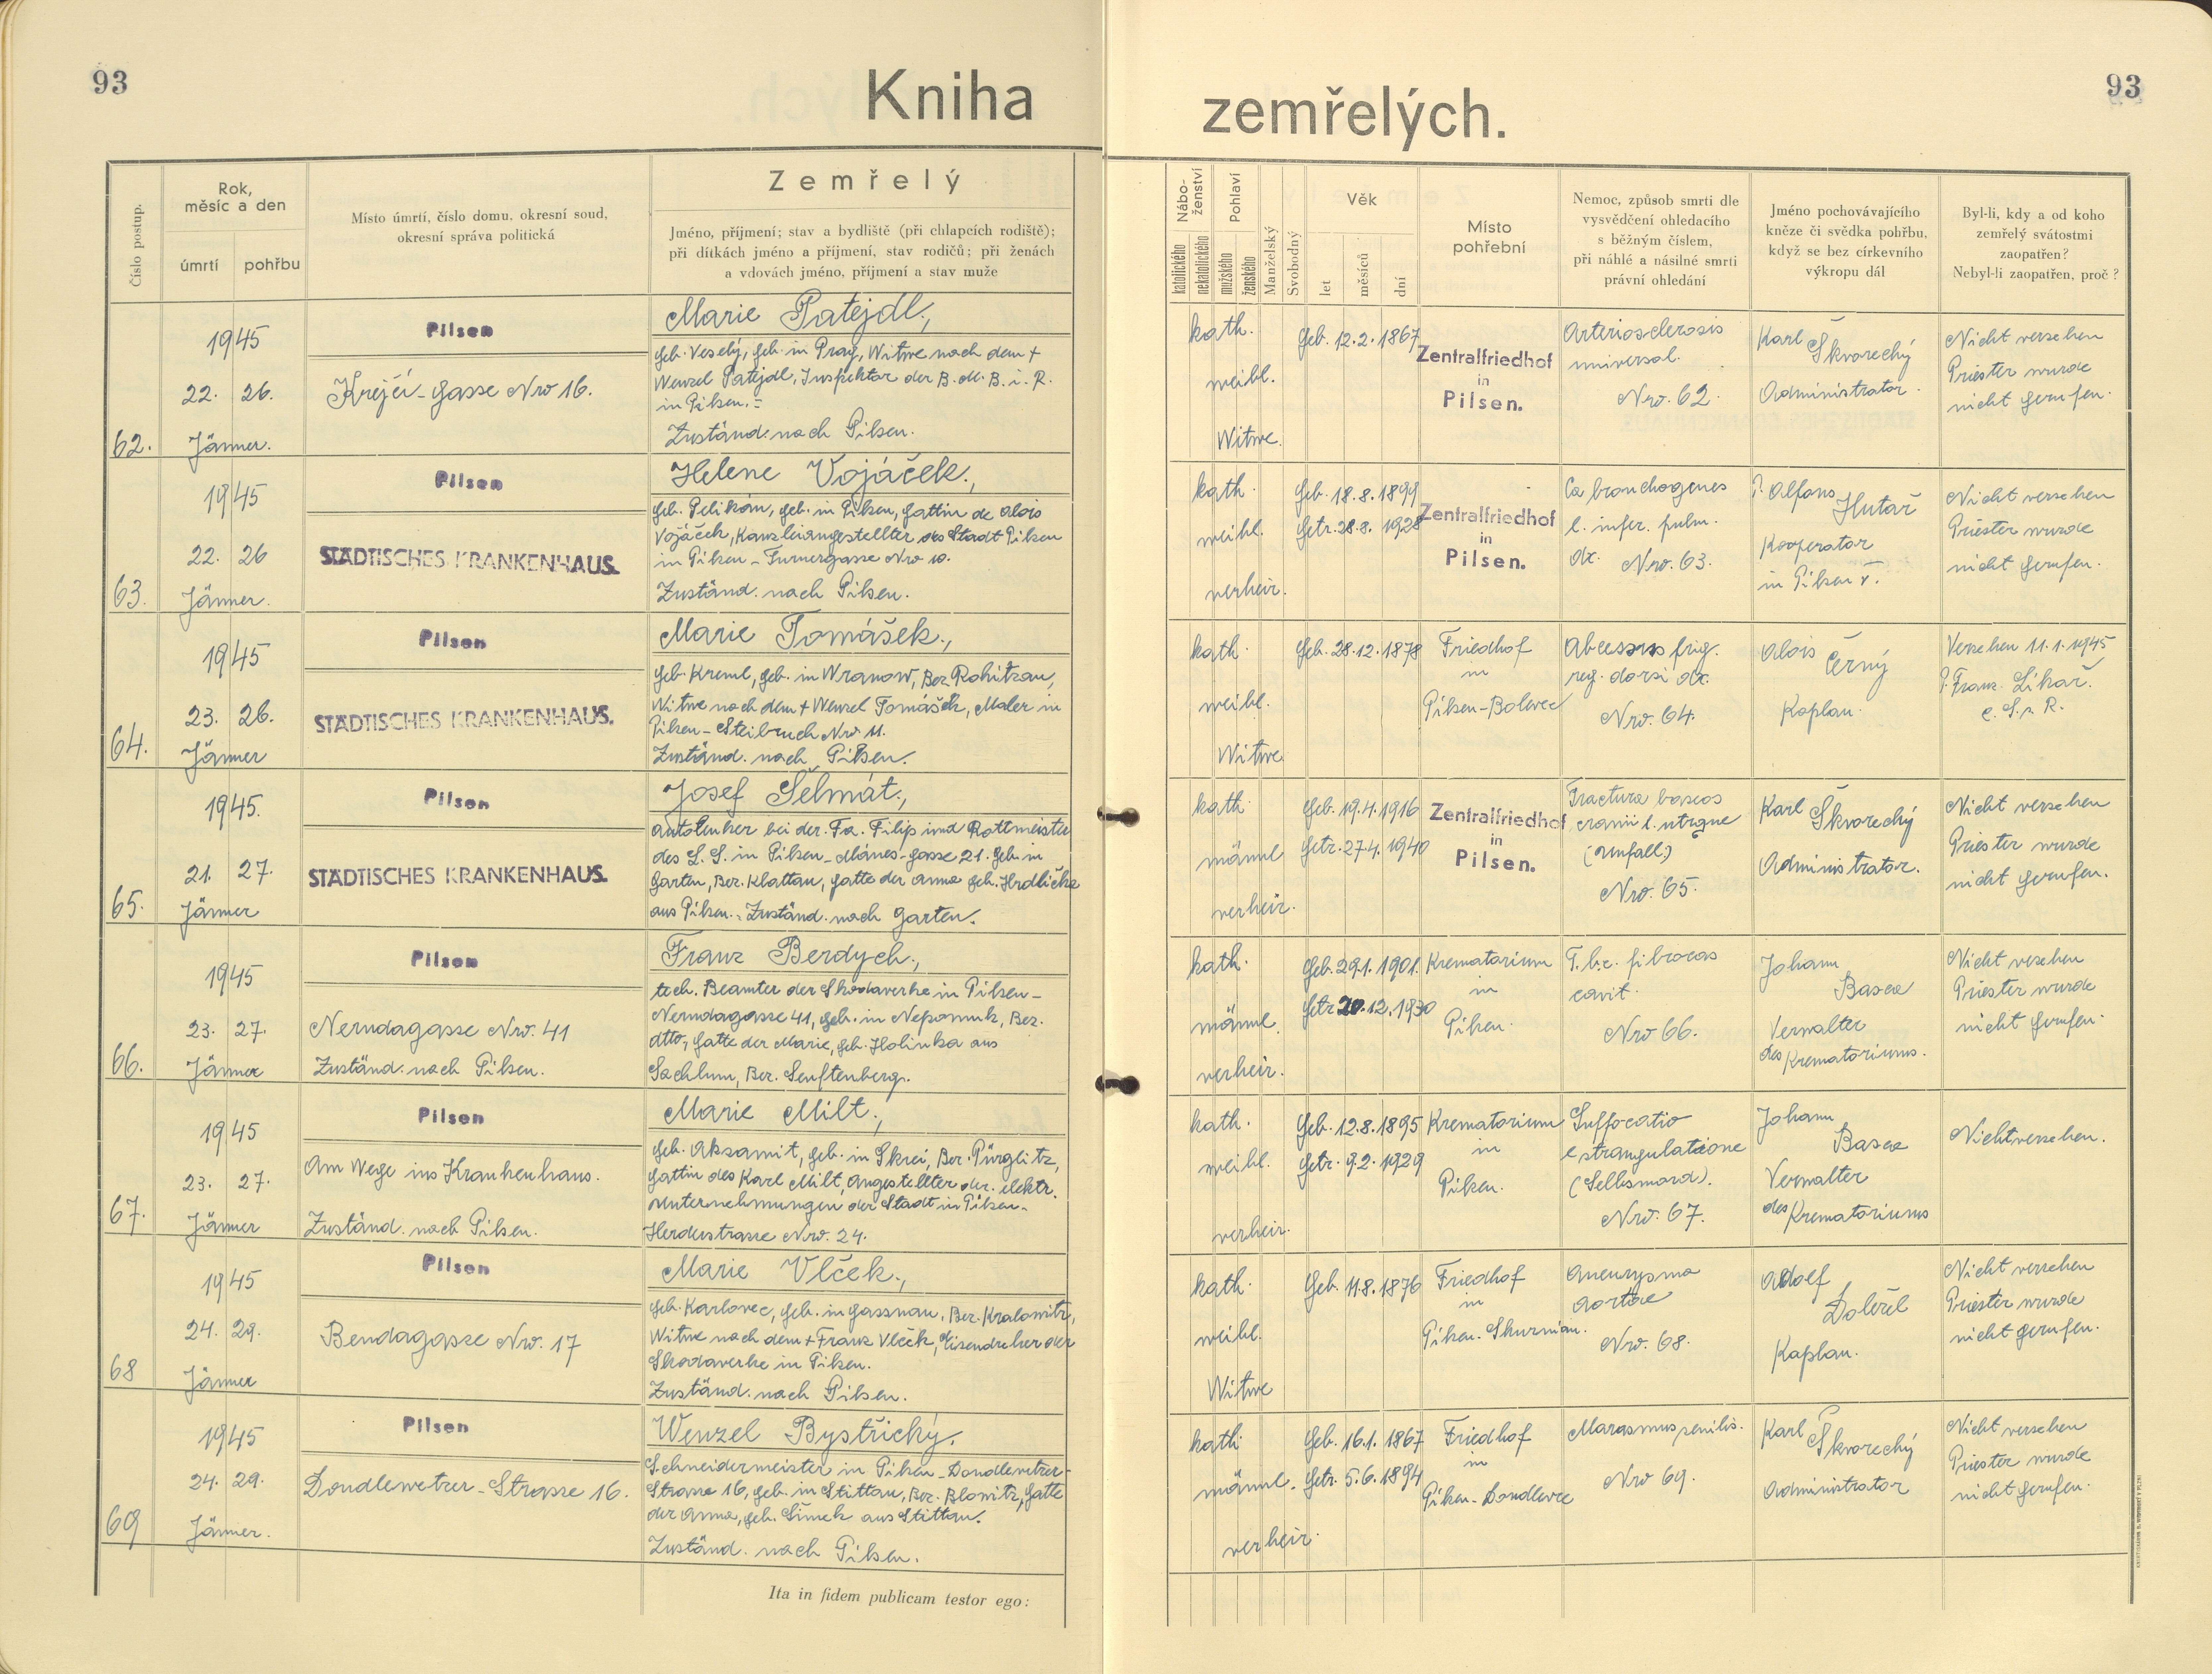 93
Kniha
zemřelých.
93
Číslo postup.
Rok,
měsíc a den
úmrtí
pohřbu
Místo úmrtí, číslo domu, okresní soud,
okresní správa politická
Zemřelý
Jméno, příjmení; stav a bydliště (při chlapcích rodiště);
při dítkách jméno a příjmení, stav rodičů; při ženách
a vdovách jméno, příjmení a stav muže
Nábo-
ženství
katolického
nekatolického
Pohlaví
mužského
ženského
Manželský
Svobodný
Věk
let
měsíců
dní
Místo
pohřební
Nemoc, způsob smrti dle
vysvědčení ohledacího
s běžným číslem,
při náhlé a násilné smrti
právní ohledání
Jméno pochovávajícího
kněze či svědka pohřbu,
když se bez církevního
výkropu dál
Byl-li, kdy a od koho
zemřelý svátostmi
zaopatřen?
Nebyl-li zaopatřen, proč?
62.
1945
22. 26.
Jänner.
Pilsen
Krejčí-Gasse Nro 16.
Marie Patejdl.,
geb. Veselý, geb. in Prag, Witwe nach dem +
Wenzel Patejdl, Inspektor der B. M. B. i. R.
in Pilsen.=
Zuständ. nach Pilsen.
kath.
weibl.
Witwe.
Geb. 12.2.1867
Zentralfriedhof
in
Pilsen.
Arteriosclerosis
universal.
Nro. 62.
Karl Škvorechý
Administrator.
Nicht versehen
Priester wurde
nicht gerufen.
63.
1945
22. 26
Jänner.
Pilsen
STÄDTISCHES KRANKENHAUS.
Helene Vojáček.,
geb. Pelikán, geb. in Pilsen, Gattin de Alois
Vojáček, Kanzleiangestellter der Stadt Pilsen
in Pilsen - Turnergasse Nro 10.
Zuständ. nach Pilsen.
kath.
weibl.
verheir.
Geb. 18.8.1899
Getr. 28.8. 1928
Zentralfriedhof
in
Pilsen.
Ca bronchogenes
l. infer. pulm.
dx. Nro. 63.
P. Alfons Hutař
Kooperator
in Pilsen V.
Nicht versehen
Priester wurde
nicht gerufen.
64.
1945
23. 26.
Jänner
Pilsen
STÄDTISCHES KRANKENHAUS.
Marie Tomášek.,
geb. Kreml, geb. in Wranow, Bez. Rokitzan,
Witwe nach dem + Wenzel Tomášek, Maler in
Pilsen - Steibruch Nro 11.
Zuständ. nach Pilsen.
kath.
weibl.
Witwe
Geb. 28.12.1878
Friedhof
in
Pilsen-Bolevec
Abcessus frig.
reg. dorsi dx.
Nro. 64.
Alois Černý
Kaplan.
Versehen 11.1.1945
P. Franz Líkař.
C. S. s. R.
65.
1945.
21. 27.
Jänner
Pilsen
STÄDTISCHES KRANKENHAUS.
Josef Šelmát.,
Autolenker bei der Fa. Filip und Rottmeister
des L. S. in Pilsen - Mánes-Gasse 21. Geb. in
Garten, Bez. Klattau, Gatte der Anna geb. Hrdlička
aus Pilsen.. Zuständ. nach Garten.
kath.
männl
verheir.
Geb. 19.4.1916
Getr. 27.4.1940
Zentralfriedhof
in
Pilsen.
Fractura baseos
cranii l. utrque
(Unfall.)
Nro. 65.
Karl Škvorechý
Administrator.
Nicht versehen
Priester wurde
nicht gerufen.
66.
1945
23. 27.
Jänner
Pilsen
Nerudagasse Nro. 41
Zuständ. nach Pilsen.
Franz Berdych.,
tech. Beamter der Skodawerke in Pilsen -
Nerudagasse 41, geb. in Nepomuk, Bez.
dtto, Gatte der Marie, geb. Holinka aus
Sachlum, Bez. Senftenberg.
kath.
männl.
verheir.
Geb. 29.1.1901.
Getr. 20.12.1930
Krematorium
in
Pilsen.
T.b.c. fibrocas
cavit.
Nro 66.
Johann
Basca
Verwalter
des Krematoriums.
Nicht vesehen
Priester wurde
nicht gerufen.
67.
1945
23. 27.
Jänner
Pilsen
Am Wege ins Krankenhaus.
Zuständ. nach Pilsen.
Marie Milt.,
geb. Aksamit, geb. in Skrei, Bez. Pürglitz,
Gattin des Karl Milt, Angestellter der elektr.
Unternehmungen der Stadt in Pilsen -
Herderstrasse Nro. 24.
kath.
weibl.
verheir.
Geb. 12.8.1895
Getr. 9.2. 1929
Krematorium
in
Pilsen.
Suffocatio
e strangulatione
(Selbsmord).
Nro. 67.
Johann
Basca
Verwalter
des Krematoriums
Nichtversehen.
68
1945
24. 29.
Jänner
Pilsen
Bendagasse Nro. 17
Marie Vlček.,
geb. Karlovec, geb. in Gassnau, Bez. Kralowitz,
Witwe nach dem + Franz Vlček, Eisendreher der
Skodawerke in Pilsen.
Zuständ. nach Pilsen.
kath.
weibl.
Witwe
Geb. 11.8.1876
Friedhof
in
Pilsen-Skurnian.
Aneurysma
aortae
Nro. 68.
Adolf
Doležel
Kaplan.
Nicht versehen
Priester wurde
nicht gerufen.
69
1945
24. 29.
Jänner.
Pilsen
Doudlewetzer-Strasse 16.
Wenzel Bystřický.
Schneidermeister in Pilsen - Doudlewetzer-
Strasse 16, geb. in Stittau, Bez. Blowitz, Gatte
der Anna, geb. Šimek aus Stittau.
Zuständ. nach Pilsen.
kath.
männl.
verheir.
Geb. 16.1. 1867
Getr. 5.6.1894
Friedhof
in
Pilsen-Doudlevce
Marasmus senilis.
Nro 69.
Karl Škvorechý
Administrator
Nicht versehen
Priester wurde
nicht gerufen.
Ita in fidem publicam testor ego: